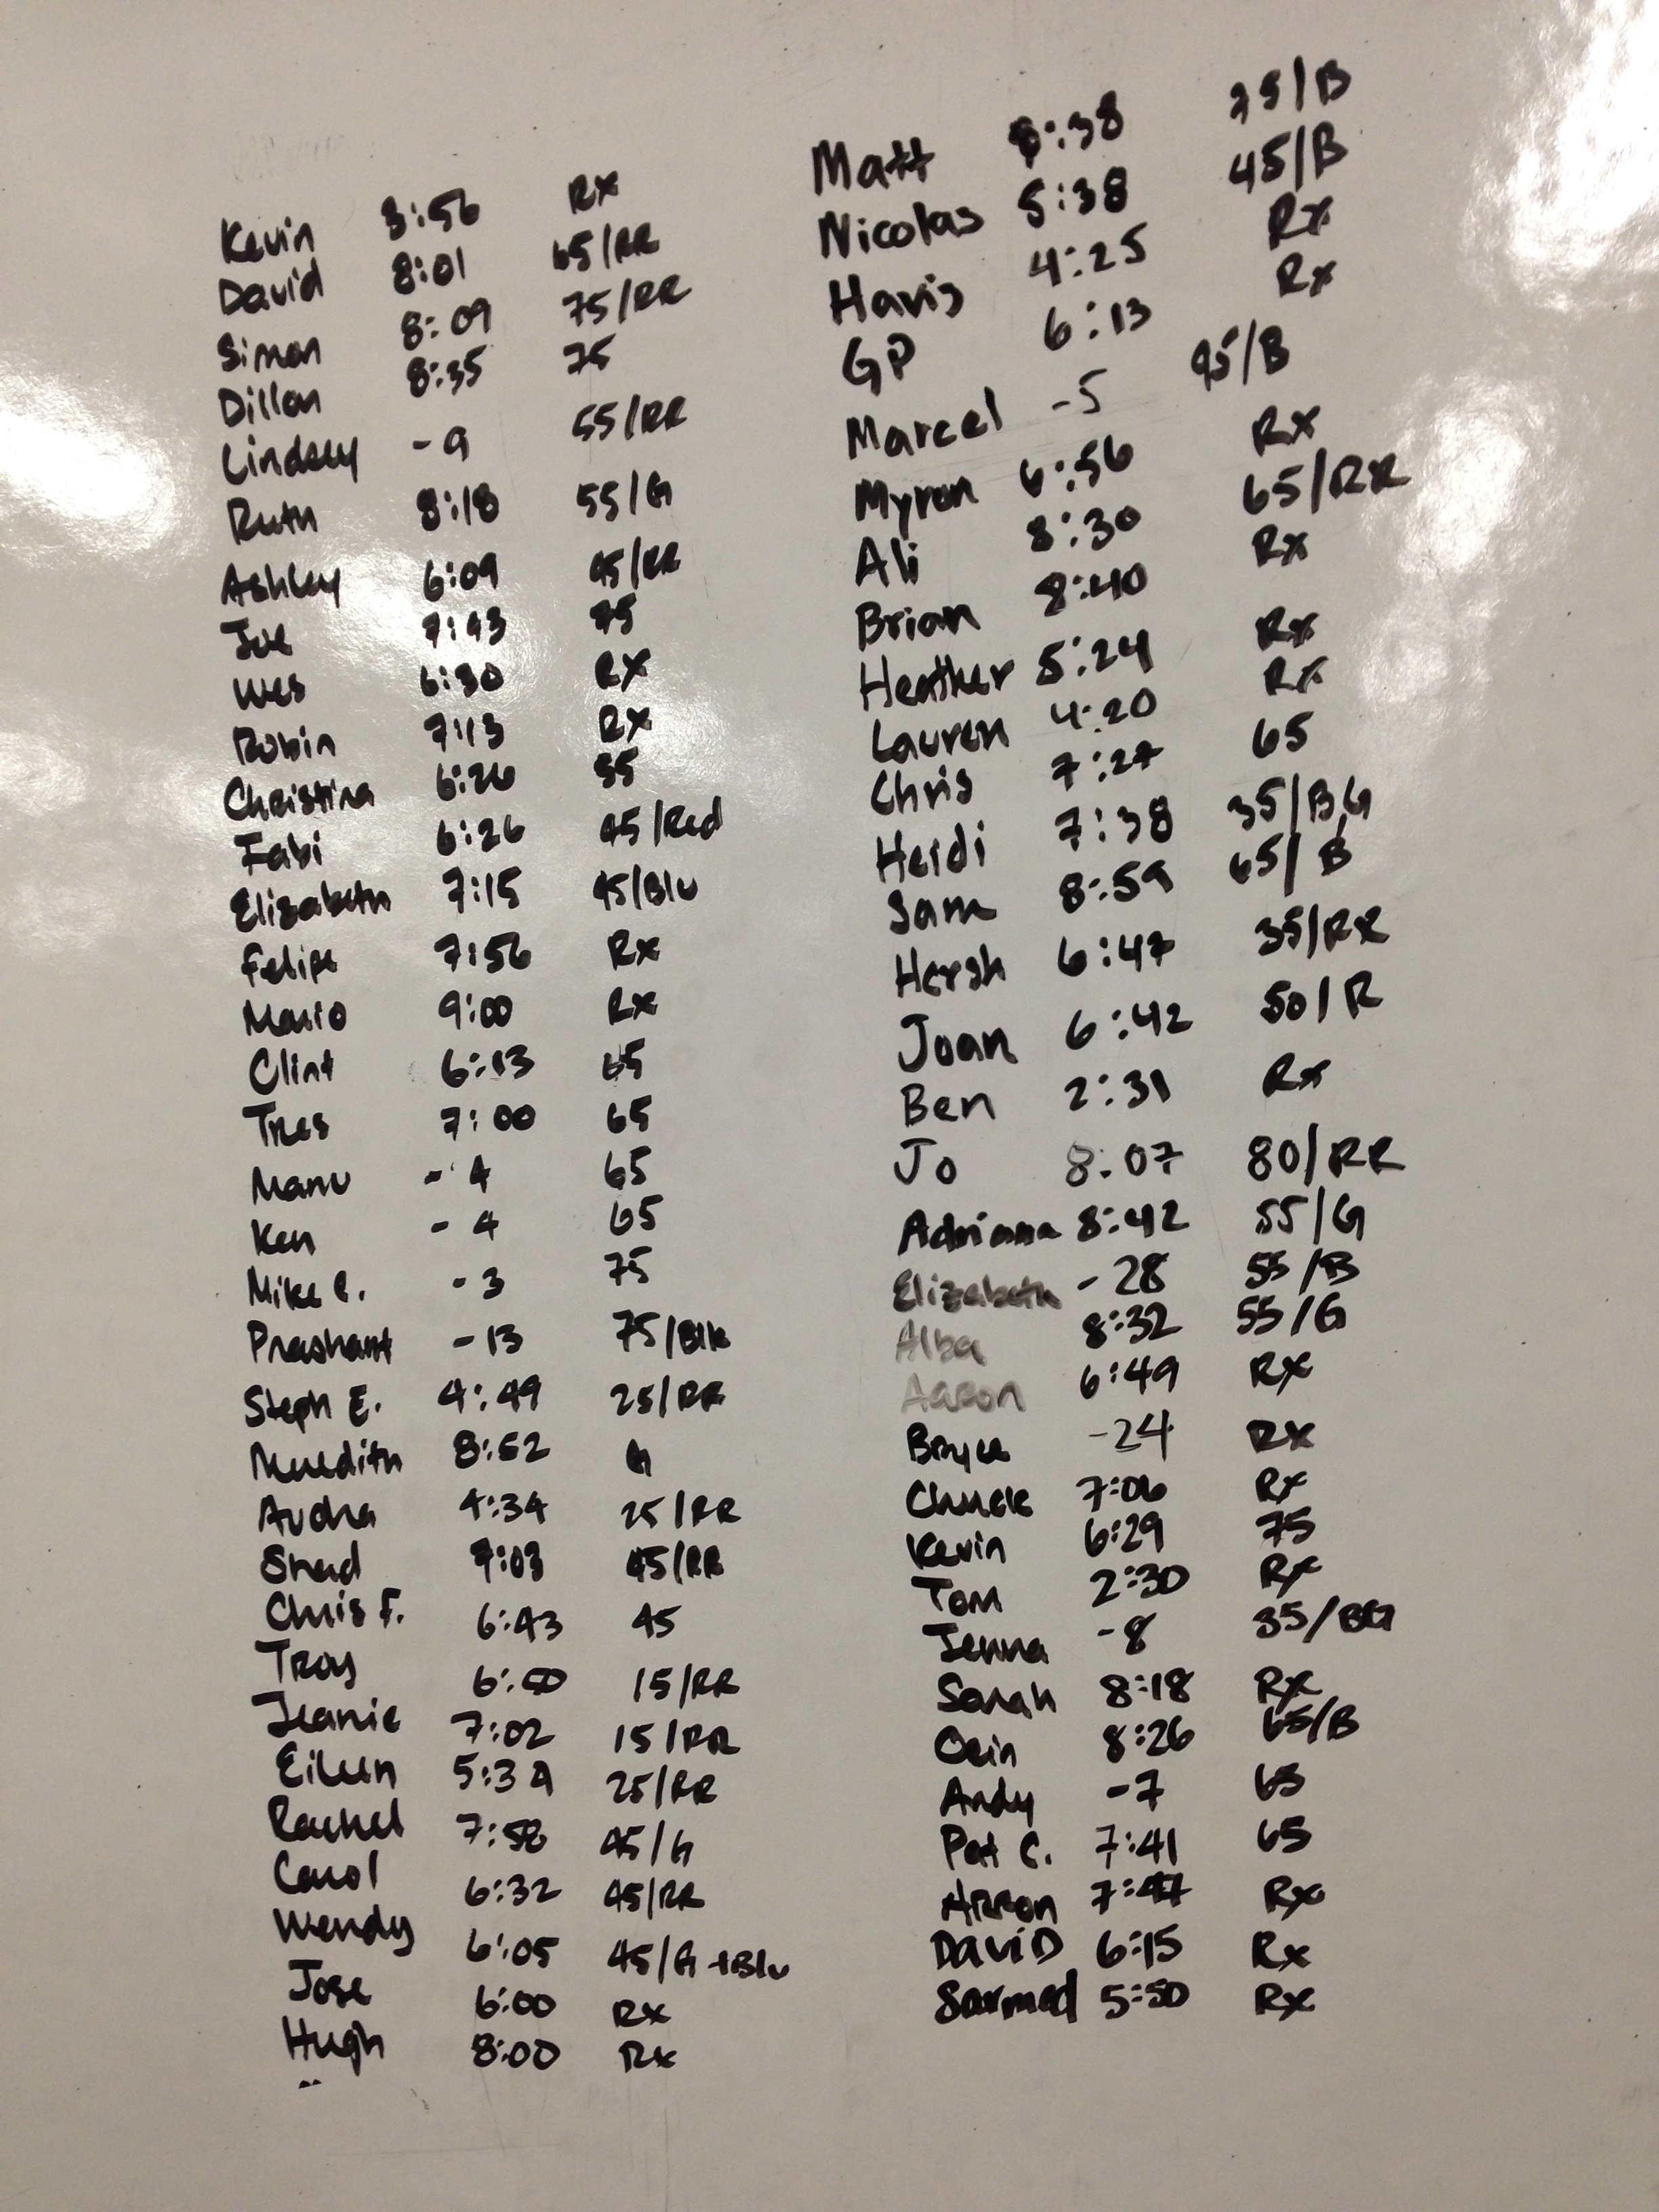 Kevin 3:56 Rx
David 8:01 65/RR
Simon 8:09 75/RR
Dillon 8:35 75
Lindsey -9 55/RR
Ruth 8:18 55/G
Ashley 6:09 45/RR
Joe 7:43 75
Wes 6:30 RX
Robin 7:13 RX
Christina 6:26 55
Fabi 6:26 45/Red
Elizabeth 7:15 45/Blu
Felipe 7:56 Rx
Mario 9:00 Rx
Clint 6:13 65
Tres 7:00 65
Manu -4 65
Ken -4 65
Mike C. -3 75
Prashant -13 75/Blk
Steph E. 4:49 25/RR
Meredith 8:52 G
Audha 4:34 25/RR
Shad 7:03 45/RR
Chris F. 6:43 45
Troy 6:50 15/RR
Jeanie 7:02 15/RR
Eileen 5:39 25/RR
Rachel 7:58 45/G
Carol 6:32 45/RR
Wendy 6:05 45/G+Blu
Jose 6:00 Rx
Hugh 8:00 Rx
Matt 8:38 75/B
Nicolas 5:38 45/B
Havis 4:25 Rx
GP 6:13 Rx
Marcel -5 95/B
Myron 6:56 Rx
Ali 8:30 65/RR
Brian 8:40 Rx
Heather 5:24 Rx
Lauren 4:20 Rx
Chris 7:27 65
Heidi 7:38 35/BG
Sam 8:59 65/B
Hersh 6:47 35/RR
Joan 6:42 50/R
Ben 2:31 Rx
Jo 8:07 80/RR
Adriana 8:42 55/G
Elizabeth -28 55/B
Alba 8:32 55/G
Aaron 6:49 Rx
Bryce -24 Rx
Chuck 7:06 Rx
Kevin 6:29 75
Tom 2:30 Rx
Jenna -8 35/BG
Sarah 8:18 Rx
8:26 65/B
Andy -7 65
Pat C. 7:41 65
7:47 Rx
DaviD 6:15 Rx
Sarmed 5:50 Rx